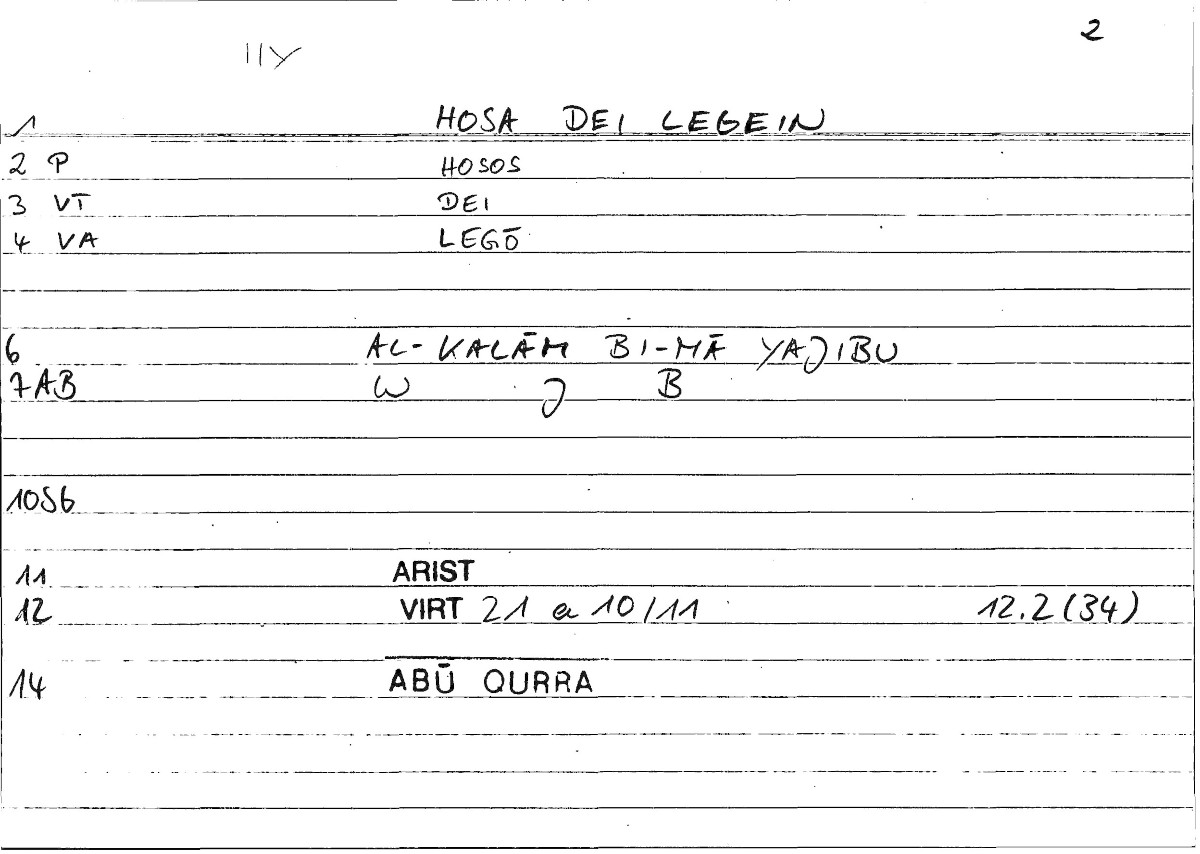 2
11Y
1 HOSA DEI LEGEIN
2 P HOSOS
3 VT̄ DEI
4 VA LEGŌ
6 AL-KALĀM BI-MĀ YAJIBU
7AB W J B
10S6
11 ARIST
12 VIRT 21 a 10/11 12.2 (34)
14 ABŪ QURRA